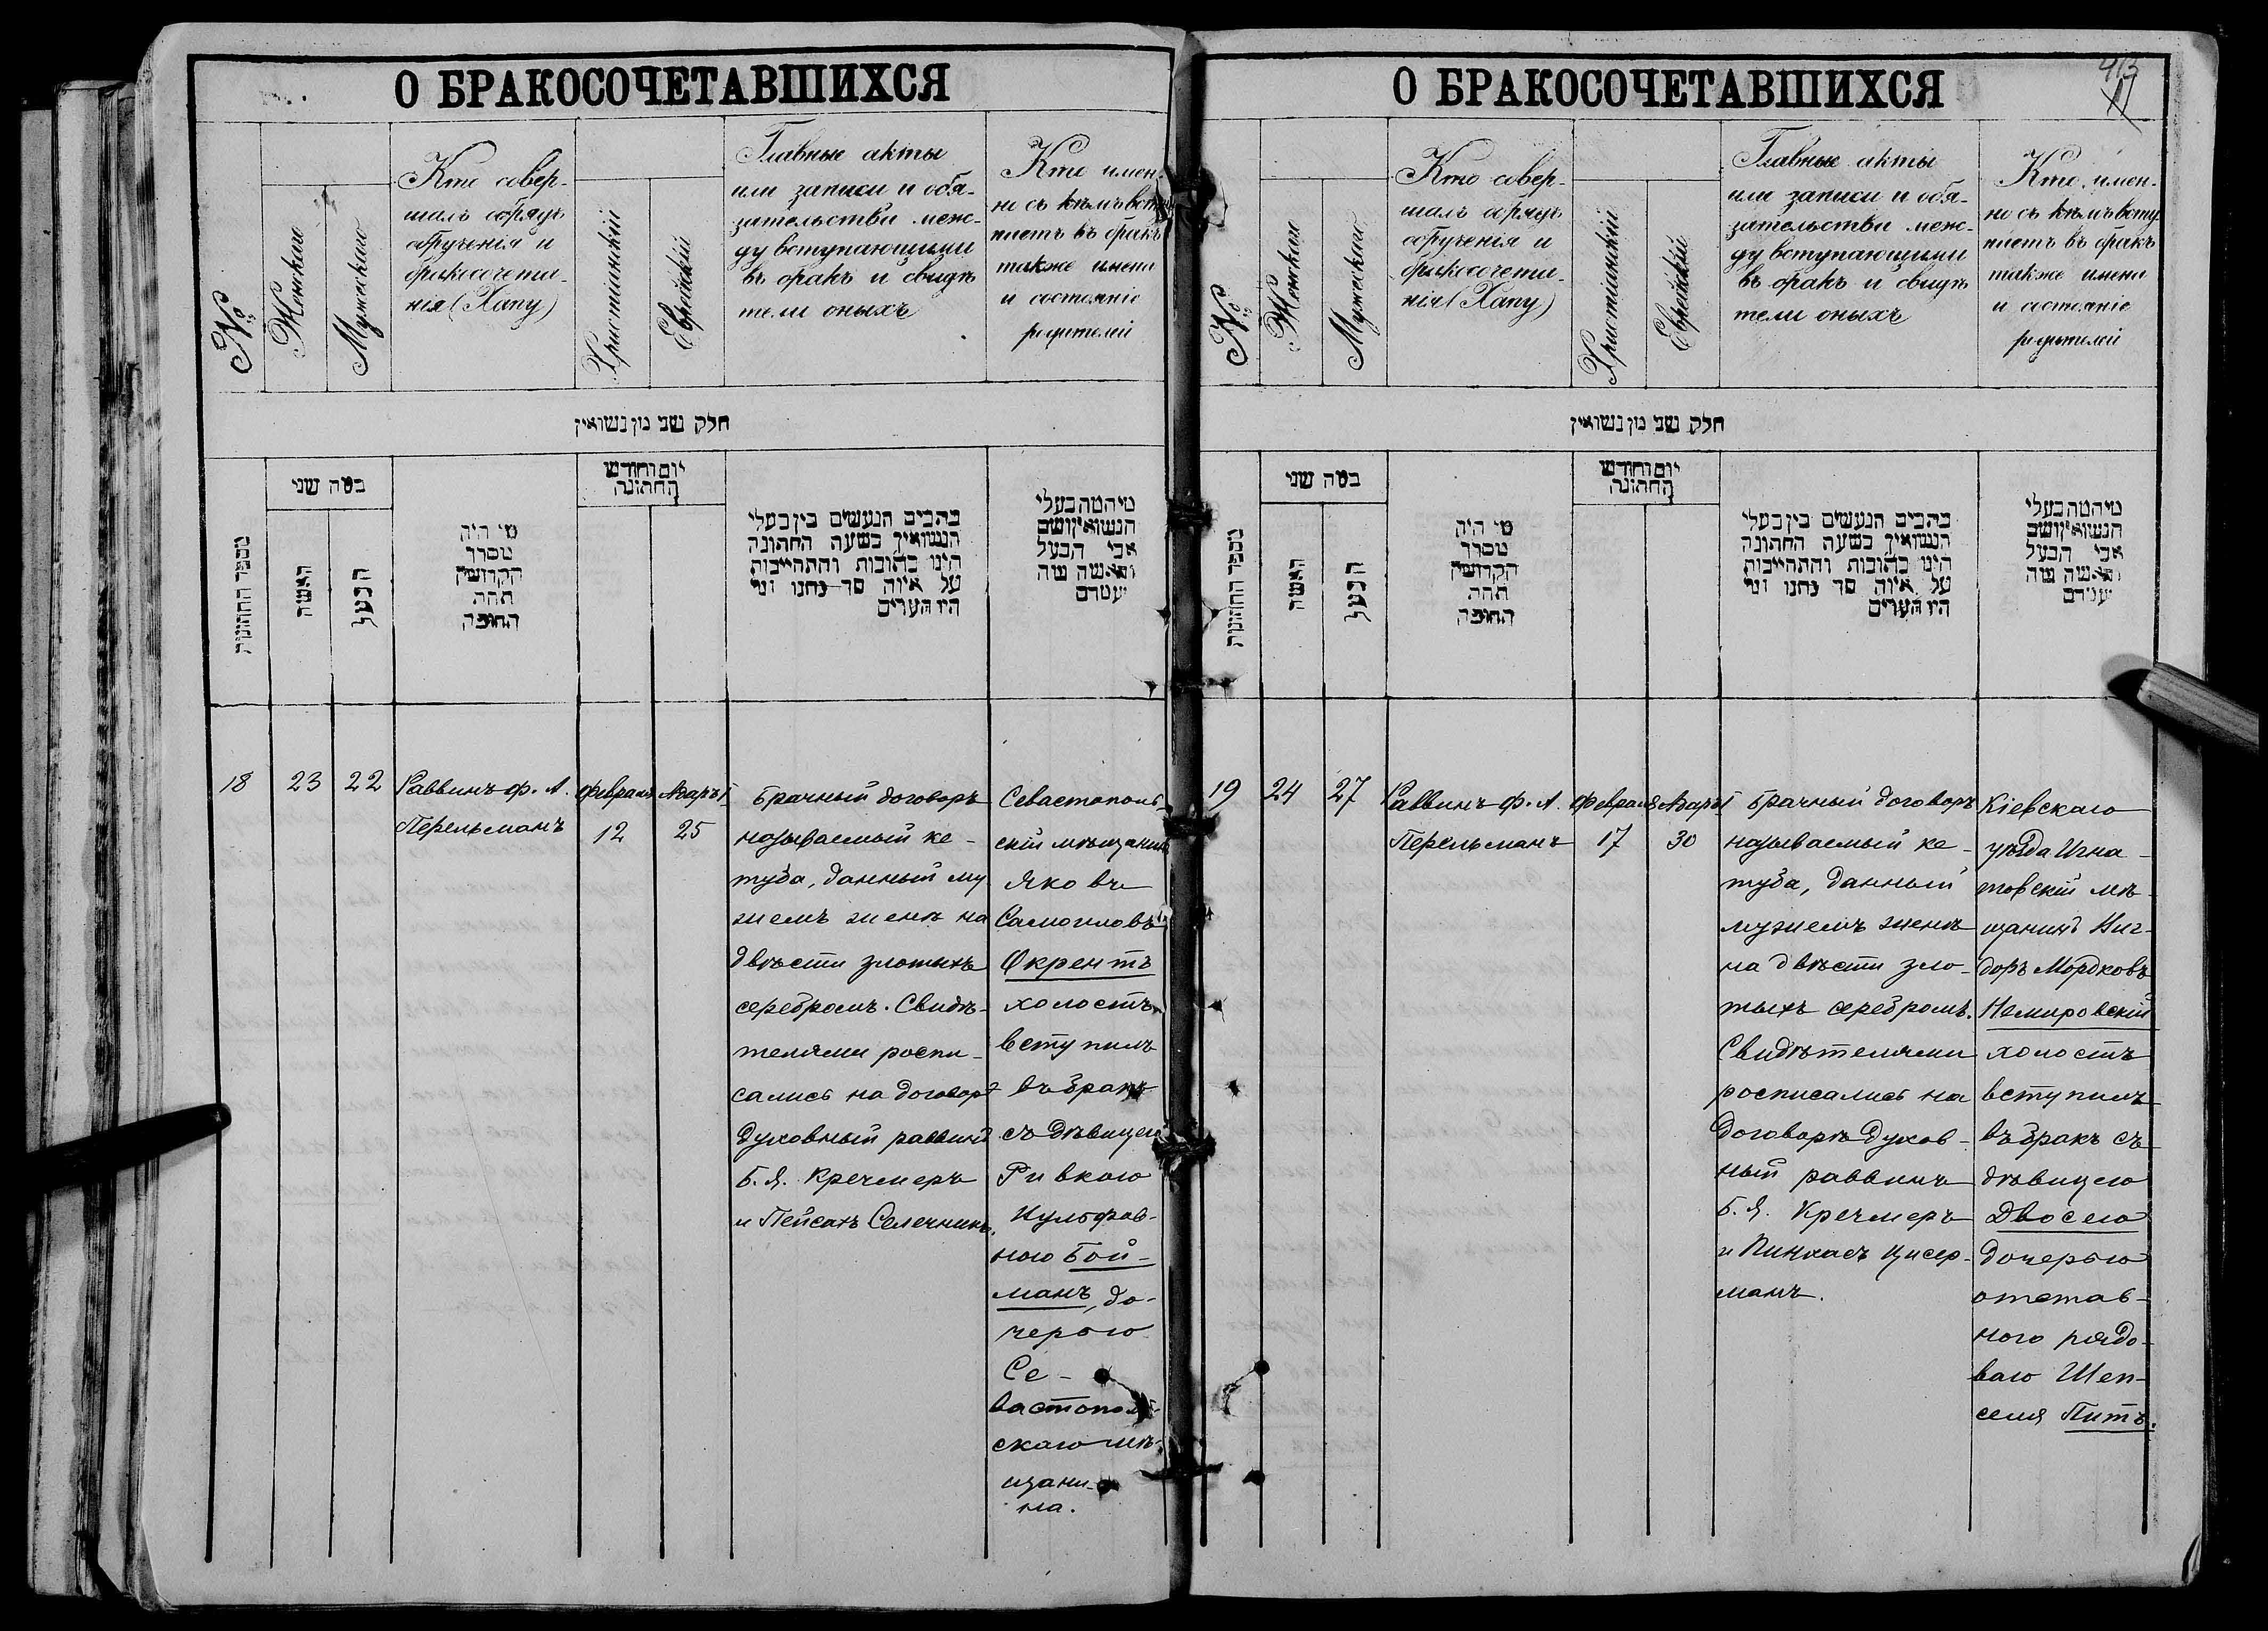 О БРАКОСОЧЕТАВШИХСЯ
№
Женскаго
Мужескаго
Кто совер-
шалъ обрядъ
обрученія и
бракосочета-
нія (Хапу)
Христіанскій
Еврейскій
Главные акты
или записи и обя-
зательства меж-
ду вступающими
въ бракъ и свидѣ
тели оныхъ
Кто имен-
но съ кѣмъ всту
паетъ въ бракъ
также имена
и состояніе
родителей
חלק שני מן נשואין
מספר החתונות
במה שני
האשה
הבעל
מי היה
מסדר
הקדושין
תחת
החופה
יום וחודש
החתונה
כתבים הנעשים בין בעלי
הנשואין בשעת החתונה
היינו כתובות והתחייבות
על איזה סך נתנו ומי
היו העדים
מי המה בעלי
הנשואין ושם
אבי הבעל
והאשה ומה
מעמדם
18
23
22
Раввинъ Ф. А.
Перельманъ
Февраля
12
Адаръ I
25
Брачный договоръ
называемый ке-
туба, данный му
жемъ женѣ на
двѣсти злотыхъ
серебромъ. Свидѣ-
телями роспи-
сались на договорѣ
духовный раввинъ
Б. Я. Кречмеръ
и Пейсахъ Селечникъ.
Севастополь
скій мѣщанинъ
Яковъ
Самоиловъ
Окрентъ
холостъ
вступилъ
въ бракъ
съ дѣвицею
Ривкою
Нульфов-
ною Бой-
манъ, до-
черью
Се-
вастополь-
скаго мѣ-
щани-
на.
О БРАКОСОЧЕТАВШИХСЯ
413
№
Женскаго
Мужескаго
Кто совер-
шалъ обрядъ
обрученія и
бракосочета-
нія (Хапу)
Христіанскій
Еврейскій
Главные акты
или записи и обя-
зательства меж-
ду вступающими
въ бракъ и свидѣ
тели оныхъ
Кто имен-
но съ кѣмъ всту
паетъ въ бракъ
также имена
и состояніе
родителей
חלק שני מן נשואין
מספר החתונות
במה שני
האשה
הבעל
מי היה
מסדר
הקדושין
תחת
החופה
יום וחודש
החתונה
כתבים הנעשים בין בעלי
הנשואין בשעת החתונה
היינו כתובות והתחייבות
על איזה סך נתנו ומי
היו העדים
מי המה בעלי
הנשואין ושם
אבי הבעל
והאשה ומה
מעמדם
19
24
27
Раввинъ Ф. А.
Перельманъ
Февраля
17
Адаръ I
30
Брачный договоръ
называемый ке-
туба, данный
мужемъ женѣ
на двѣсти зло-
тыхъ серебромъ.
Свидѣтелями
росписались на
договорѣ духов-
ный раввинъ
Б. Я. Кречмеръ
и Пинхасъ Цисер-
манъ.
Кіевскаго
уѣзда Игна-
товскій мѣ-
щанинъ Виг-
доръ Мордковъ
Немировскій
холостъ
вступилъ
въ бракъ съ
дѣвицею
Двосею
дочерью
отстав-
ного рядо-
ваго Шеп-
селя Питъ.